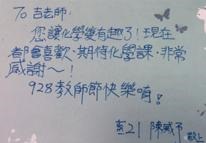 To 吉老師:
您讓化學變有趣了!現在
都會喜歡、期待化學課,非常
感謝~!
928教師節快樂唷!
高21 陳威
敬上